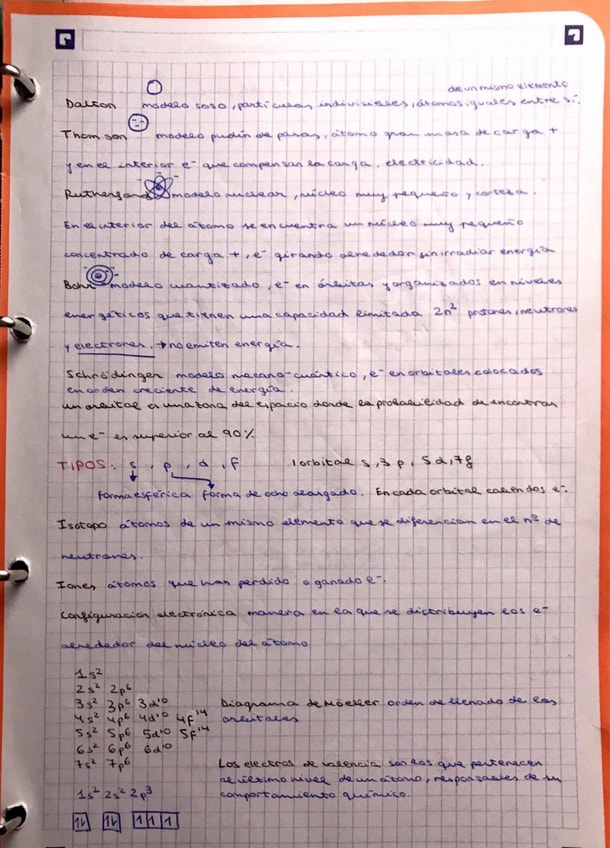 de un mismo elemento
Dalton modelo soso, partículas indivisibles, átomos iguales entre sí.
Thomson modelo pudin de pasas, átomo gran masa de carga +
y en el interior e⁻ que compensan la carga. electricidad.
Rutherford modelo nuclear, núcleo muy pequeño y corteza.
En el interior del átomo se encuentra un núcleo muy pequeño
concentrado de carga +, e⁻ girando alrededor sin irradiar energía
Bohr modelo cuantizado, e⁻ en órbitas y organizados en niveles
energéticos que tienen una capacidad limitada 2n² protones, neutrones
y electrones. → no emiten energía.
Schrödinger modelo mecano-cuántico, e⁻ en orbitales colocados
en orden creciente de energía.
un orbital es una zona del espacio donde la probabilidad de encontrar
un e⁻ es superior al 90%
TIPOS: s, p, d, f 1 orbital s, 3 p, 5 d, 7 f
forma esférica forma de ocho alargado. En cada orbital caben dos e⁻.
Isotopo átomos de un mismo elemento que se diferencian en el nº de
neutrones.
Iones átomos que han perdido o ganado e⁻.
Configuración electrónica manera en la que se distribuyen los e⁻
alrededor del núcleo del átomo
1s²
2s² 2p⁶
3s² 3p⁶ 3d¹⁰ Diagrama de Möeller orden de llenado de los
4s² 4p⁶ 4d¹⁰ 4f¹⁴ orbitales
5s² 5p⁶ 5d¹⁰ 5f¹⁴
6s² 6p⁶ 6d¹⁰
7s² 7p⁶ Los electros de valencia son los que pertenecen
al último nivel de un átomo, responsables de su
1s² 2s² 2p³ comportamiento químico.
1↓ 1↓ 1 1 1